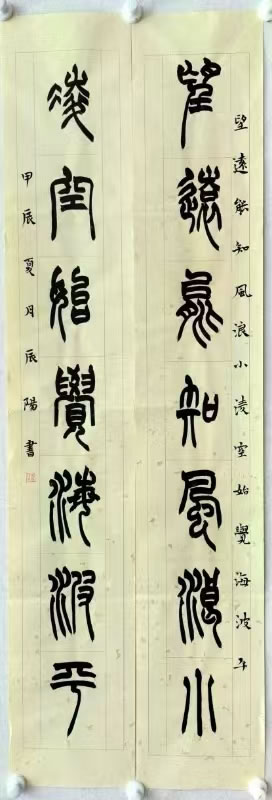 望遠能知風浪小凌空始覺海波平
望遠能知風浪小
凌空始覺海波平
甲辰夏月辰陽書